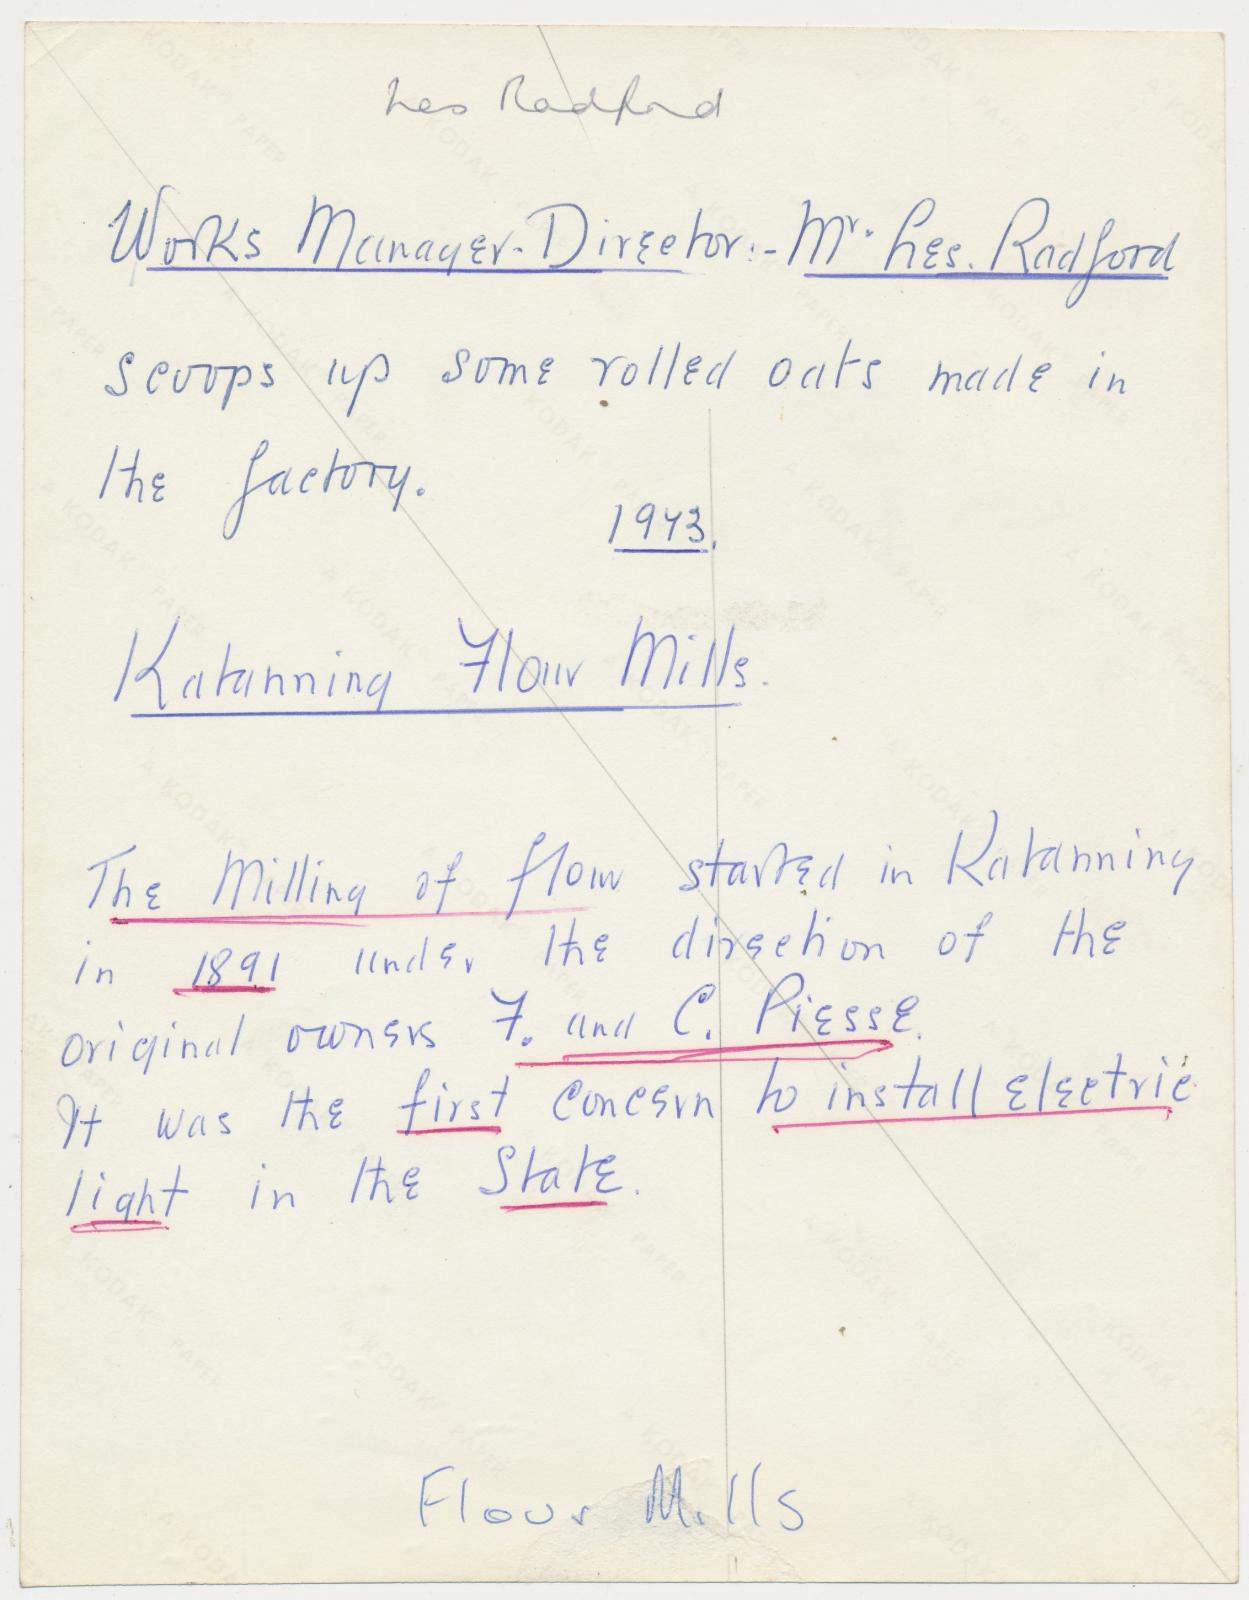 Les Radford
Works Manager-Director:- Mr. Les. Radford
scoops up some rolled oats made in
the factory.
1943.
Katanning Flour Mills.
The Milling of flour started in Katanning
in 1891 under the direction of the
original owners F. and C. Piesse.
It was the first concern to install electric
light in the State.
Flour Mills